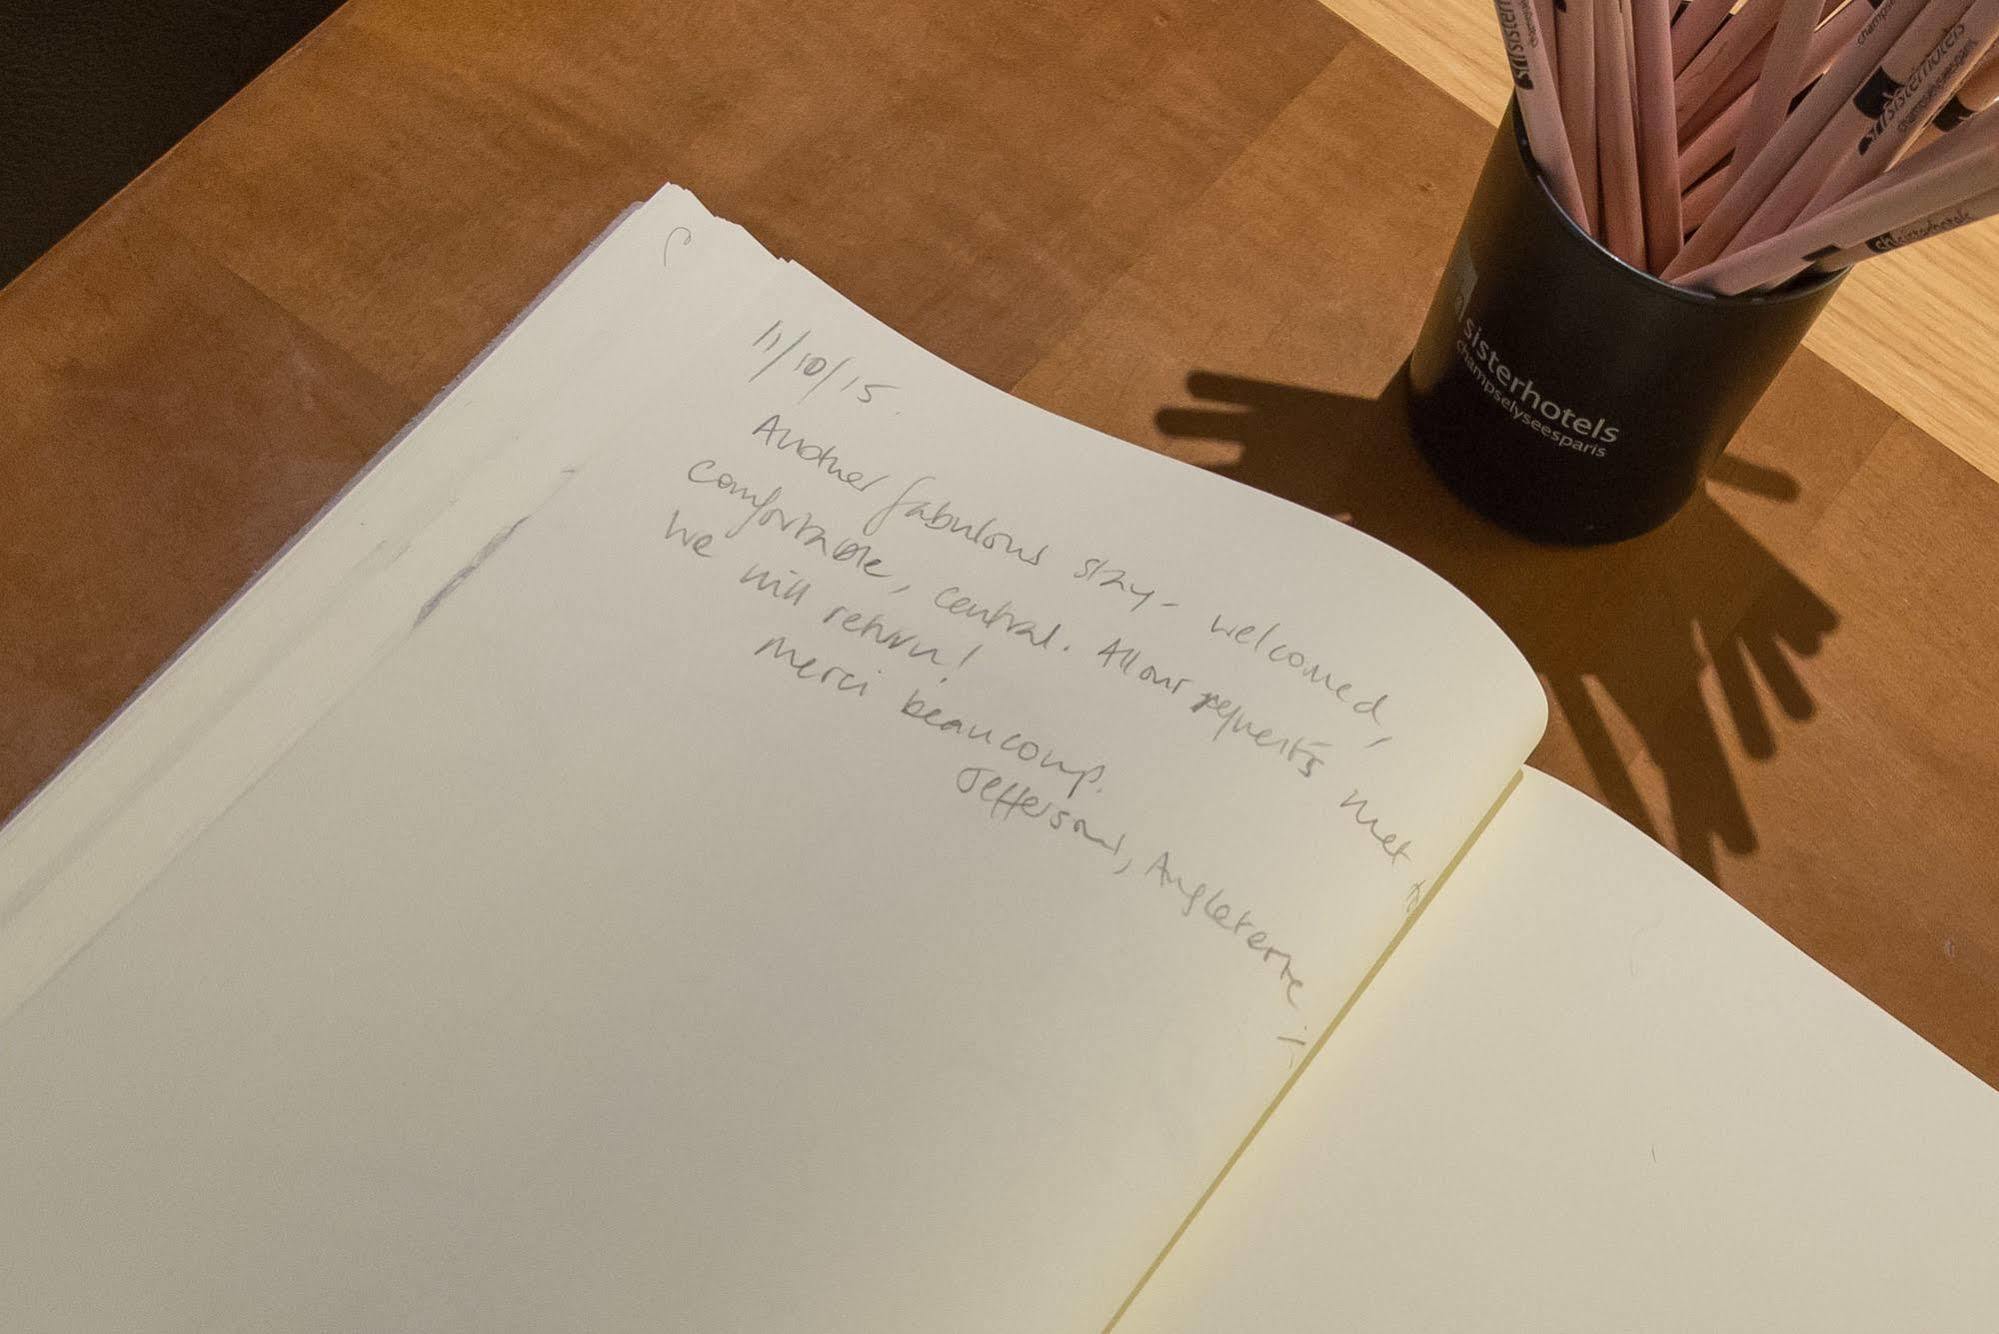 11/10/15.
Another fabulous stay - welcomed,
comfortable, central. All our requests met
we will return!
merci beaucoup.
Jeffersons, Angleterre
sisterhotels
champselyseesparis
sisterhotels
champselyseesparis
sisterhotels